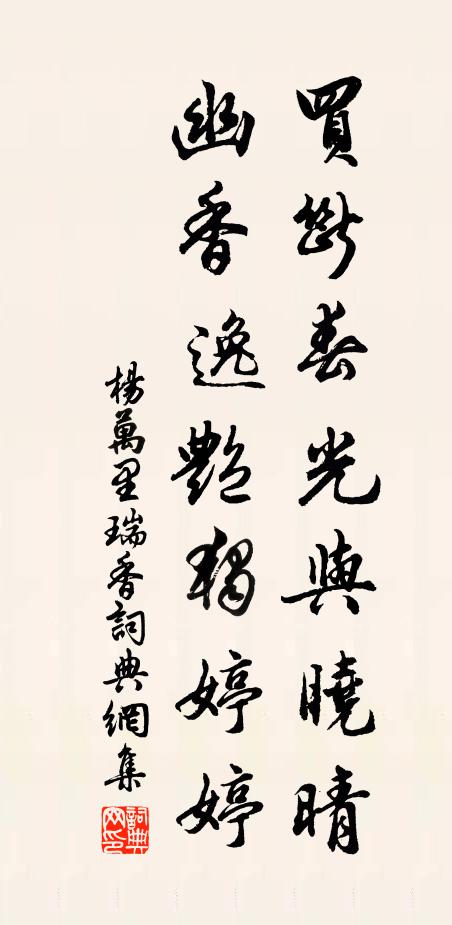 買斷春光與曉晴
幽香逸艷獨婷婷
楊萬里瑞香詞典網集
詞典網印